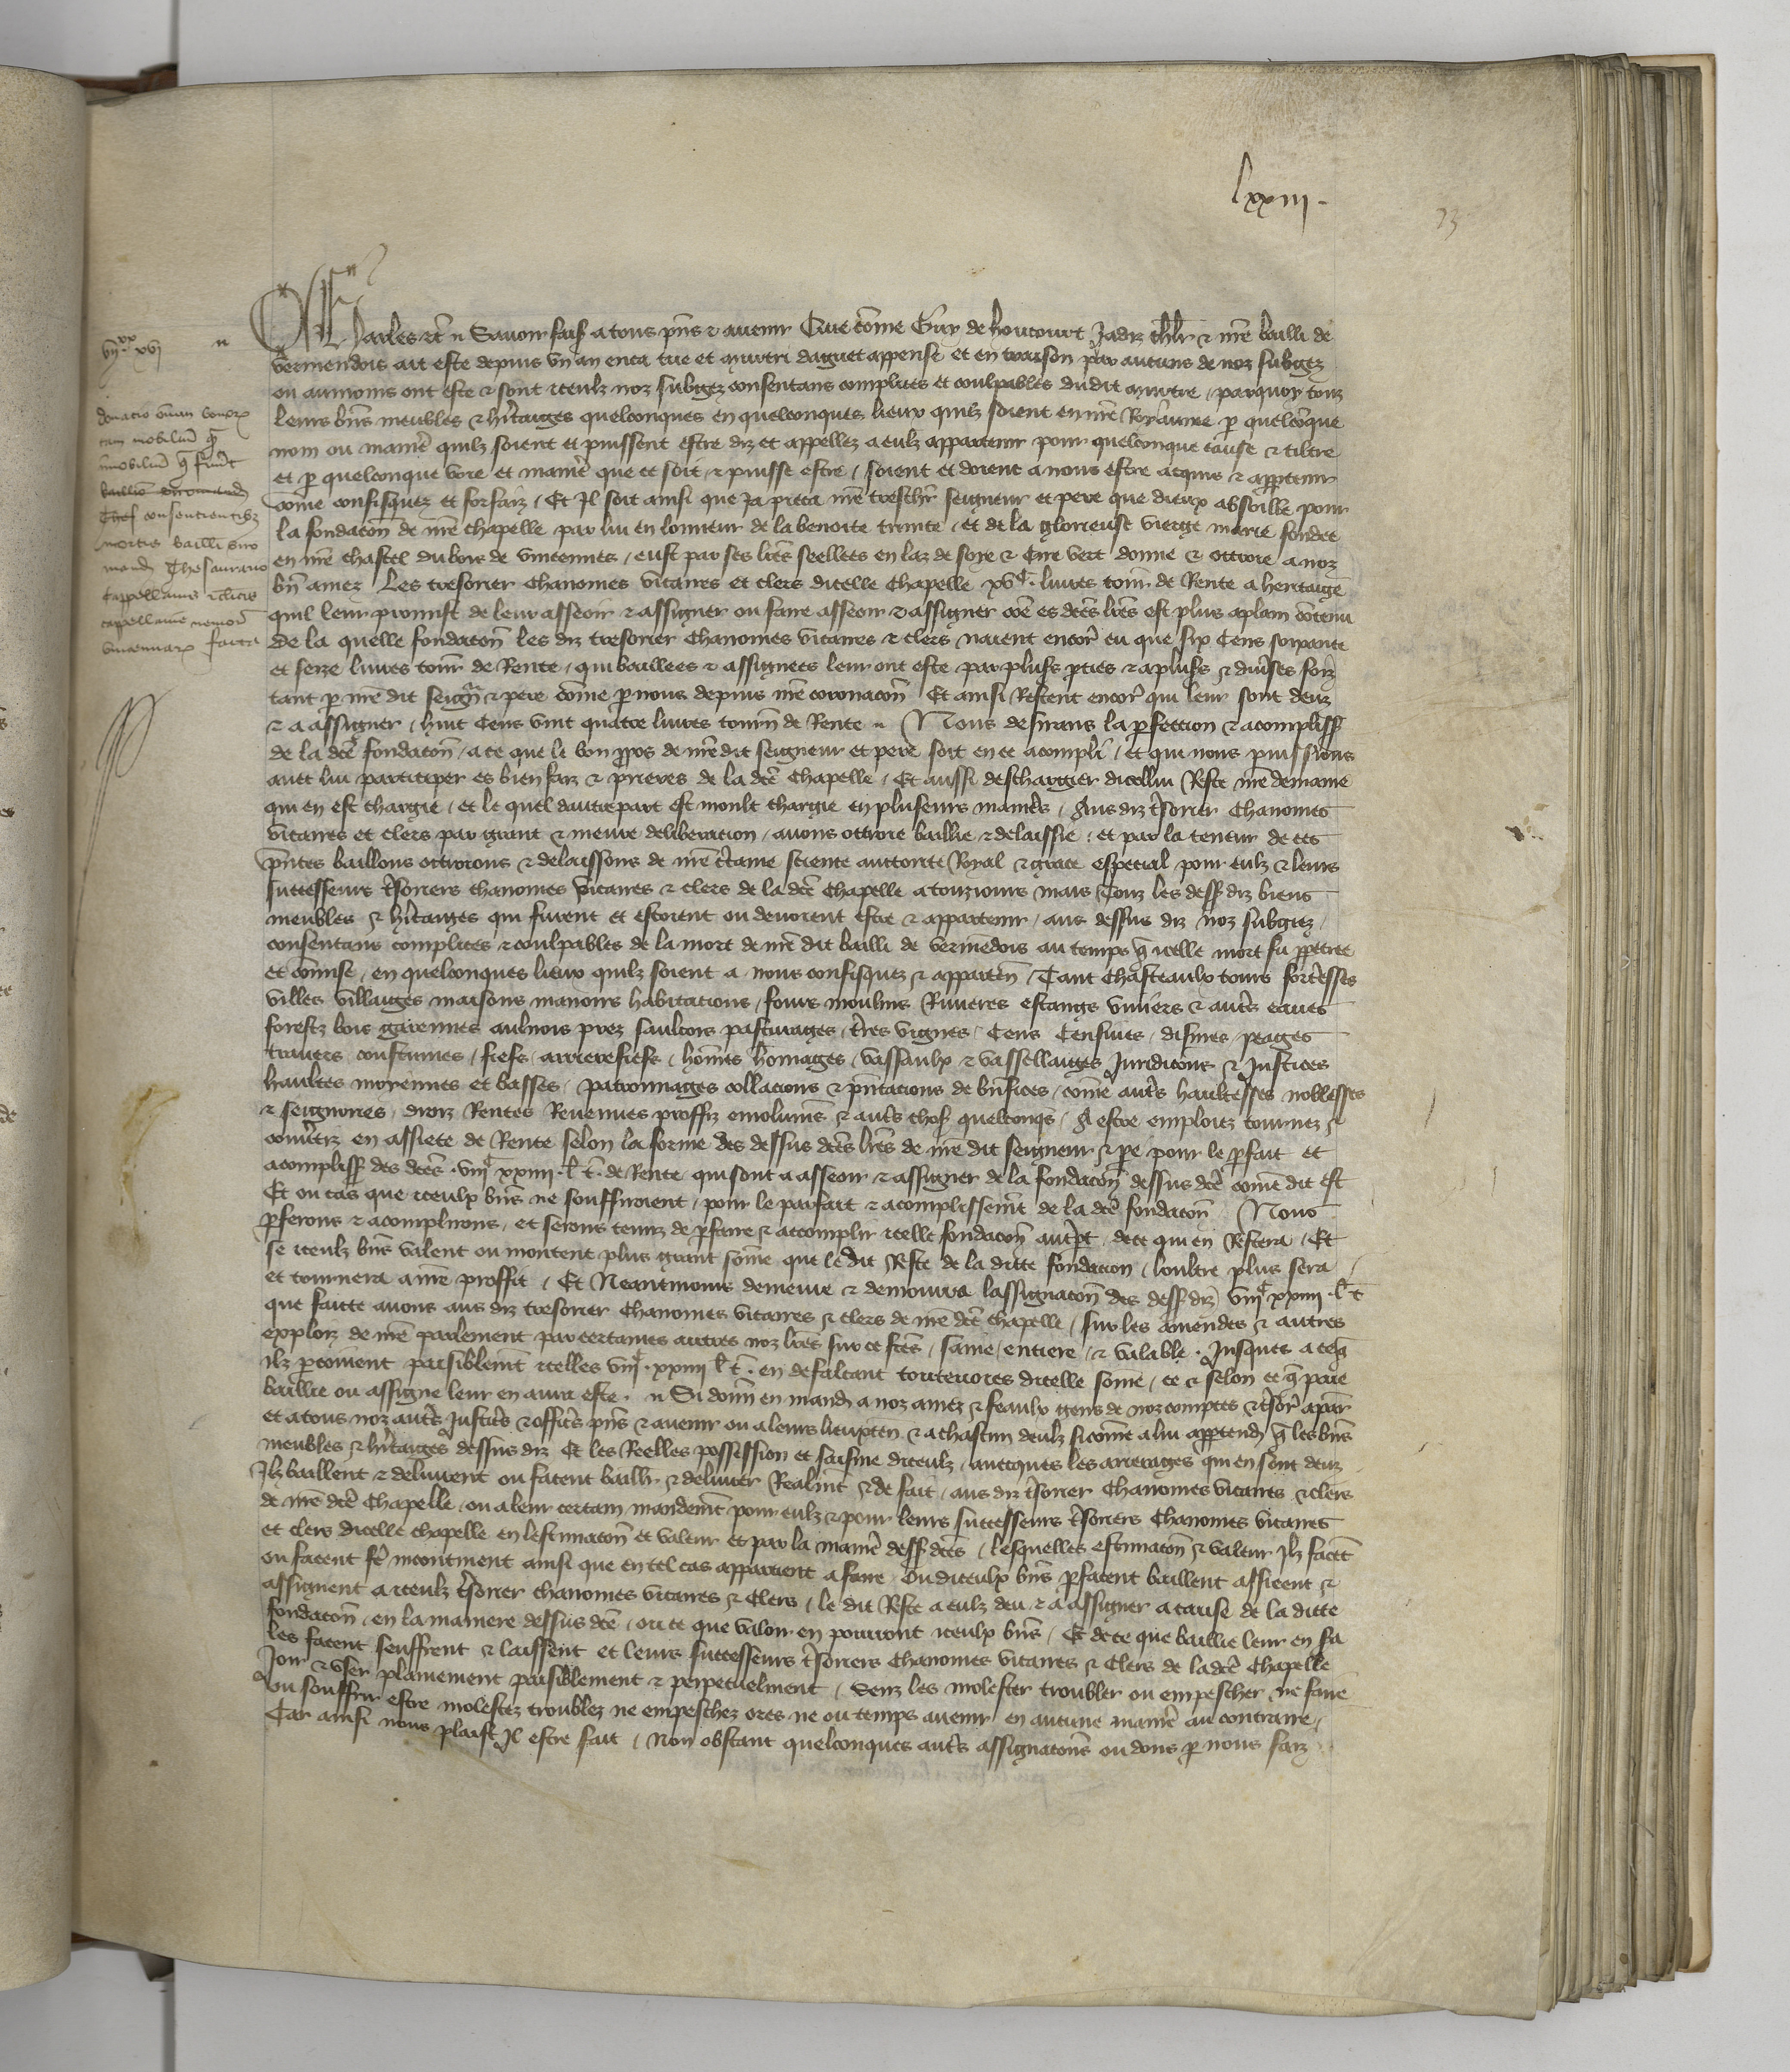 lxxiii.
73
Charles etc. Savoir fais a tous pns & avenir Que cõme Guy de honcourt Jadiz chlr & nrẽ bailli de
vermendois ait este depuis un an enca tue et murtri daguet appense et en traison par aucuns de noz subgez
ou aumoins ont este & sont iceulz noz subgez consentans complices et coulpables dudit murtre / parquoy touz
leurs bñs meubles & hitauges quelconques en quelconques lieux quilz soient en nrẽ Royaume p quelcõque
nom ou manie quilz soient et puissent estre diz et appellez a eulz appartenir pour quelconque cause & tiltre
et p quelconque voie et manie que ce soit & puisse estre / soient et doient a nous estre acquis & apptenir
cõme confisquez et forfaiz / Et Il soit ainsi que Ja pieca nrẽ treschr seigneur et pere que dieux absoille pour
la fondacõn de nrẽ chapelle par lui en lonneur de la benoite trinite / et de la glorieuse vierge marie fondee
en nrẽ chastel du bois de vincennes / eust par ses lrẽs seellees en laz de soye & Cire vert donne & ottroie a noz
bñ amez Les tresorier chanoines vicaires et clers dicelle chapelle xvc. livres tourñ de Rente a heritaige
quil leur promist de leur asseoir & assigner ou faire asseoir & assigner cõe es dcẽs lrẽs est plus aplain cõtenu
De la quelle fondacõn les diz tresorier chanoines vicaires & clers naient encor eu que six Cens soixante
et seize livres tourñ de Rente / qui baillees & assignees leur ont este par plusrs pties & a plusrs & divses foiz
tant p nrẽ dit seignr & pere cõme p nous depuis nrẽ coronacõn Et ainsi Restent encor qui leur sont deuz
& a assigner / huit Cens vint quatre livres tourñ de Rente Nous desirans la pfection & acompliss
de la dcẽ fondacõn / a ce que le bon ppos de nrẽ dit seigneur et pere soit en ce acompli / et qui nous puissions
avec lui participer es bien faiz & prieres de la dcẽ chapelle / Et aussi deschargier dicellui Reste nrẽ demaine
qui en est chargie / et le quel dautre part est moult chargie en plusieurs manies / Aus diz tsorier chanoines
vicaires et clers par grant & meure deliberation / avons ottroie baillie & delaissie / et par la teneur de ces
pñtes baillons ottroions & delaissons de nrẽ ctaine science auctorite Royal & grace especial pour eulz & leurs
successeurs tsoriers chanoines vicaires & clers de la dcẽ chapelle a touziours mais Touz les dess diz biens
meubles & hitaiges qui furent et estoient ou devoient estre & appartenir / aus dessus diz noz subgiez /
consentans complices & coulpables de la mort de nrẽ dit bailli de vermẽdois au temps q icelle mort fu ppetree
et cõmise / en quelconques lieux quilz soient a nous confisquez & apparteñ / Tant chasteaulx tours fortesses
villes villaiges maisons manoirs habitacions / fours moulins Rivieres estangs viviers & auts eaues
forestz bois garennes aulnois prez saulcois pasturages / tres vignes / Cens Censives / disines / peages
travers / coustumes / fiefs / arrierefiefs / hõmes hõmages / vassaulx & vassellaiges Juridicõns & Justices
haultes moiennes et basses / patronnages collacions & pñtacions de bñfices / cõme auts haultesses noblesses
& seigñories / droiz / Rentes Revenues proffiz emolumẽs & auts chos quelconqs / A estre emploiez tournez &
convtiz en assiete de Rente selon la forme des dessus dcẽs lrẽs de nrẽ dit seigneur & pe pour le pfait et
acompliss des dcẽs . viiic xxiiii . l t . de Rente qui sont a asseoir & assigner de la fondacõn dessus dcẽ com̃e dit est
Et ou cas que iceulx bñs ne souffiroient / pour le parfait & acomplissemt de la dcẽ fondacõn Nous
pferons & acomplirons / et serons tenuz de pfaire & accomplir icelle fondacõn autpt / de ce qui en Restera / Et
se iceulz bñs valent ou montent plus grant sõme que le dit Reste de la ditte fondation / loultre plus sera
et tournera a nrẽ proffit / Et Neantmoins demeure & demourra lassignacõn des dess diz viiic xxiiii . l t
que faicte avons aus diz tresorier chanoines vicaires & clers de nrẽ dcẽ chapelle / sur les amendes & autres
exploiz de nrẽ parlement par certaines autres noz lrẽs sur ce fcẽs / saine / entiere / & valable . Jusques a ceq
Ilz pcoivent paisiblemt icelles viiic . xxiiii l t . en defalcant toutevoies dicelle sõme / ce & selon ce q paie
baillie ou assigne leur en aura este . Si donñ en mand a noz amez & feaulx gens de noz comptes & tsor a par
et a tous noz auts Justics & offics pñs & avenir ou a leurs lieuxteñ & a chascun deulz si cõme a lui apptend q les bñs
meubles & hitaiges dessus diz Et les Reelles possession et saisine diceulz / avecques les arrerages qui en sont deuz
Ilz baillent & delivrent ou facent baillr & delivrer Realmt & de fait / aus diz tsorier chanoines vicaires & clers
de nrẽ dcẽ chapelle / ou a leur certain mandemt pour eulz & pour leurs successeurs tsoriers chanoines vicaires
et clers dicelle chapelle en lestimacõn et valeur et par la manie dess dcẽs / lesquelles estimacõn & valeur Ilz facẽt
ou facent fe incontinent ainsi que en tel cas appartient a faire Ou diceulx bñs pfacent baillent assieent &
assignent a iceulz tsorier chanoines vicaires & Clers / le dit Reste a eulz deu & a assigner a cause de la ditte
fondacõn / en la maniere dessus dcẽ / ou ce que valoir en pourront iceulx bñs / Et de ce que baillie leur en sa
les facent seuffrent & laissent et leurs successeurs tsoriers chanoines vicaires & Clers de la dcẽ chapelle
Joir & user plainement paisiblement & perpetuelment / Senz les molester troubler ou empescher ne faire
ou souffrir estre molestez troublez ne empeschez ores ne ou temps avenir en aucune manie au contraire /
Car ainsi nous plaist Il estre fait / Non obstant quelconques auts assignacõns ou dons p nous faiz
viixx xvi
donacio om̃n bonorx
tam mobiliũ q
inmobiliũ q fuert
consentientibz
mortis bailli viro
mand Thesaurario
Cappellanis & clicis
cappellanie nemoris
vincennarx facta